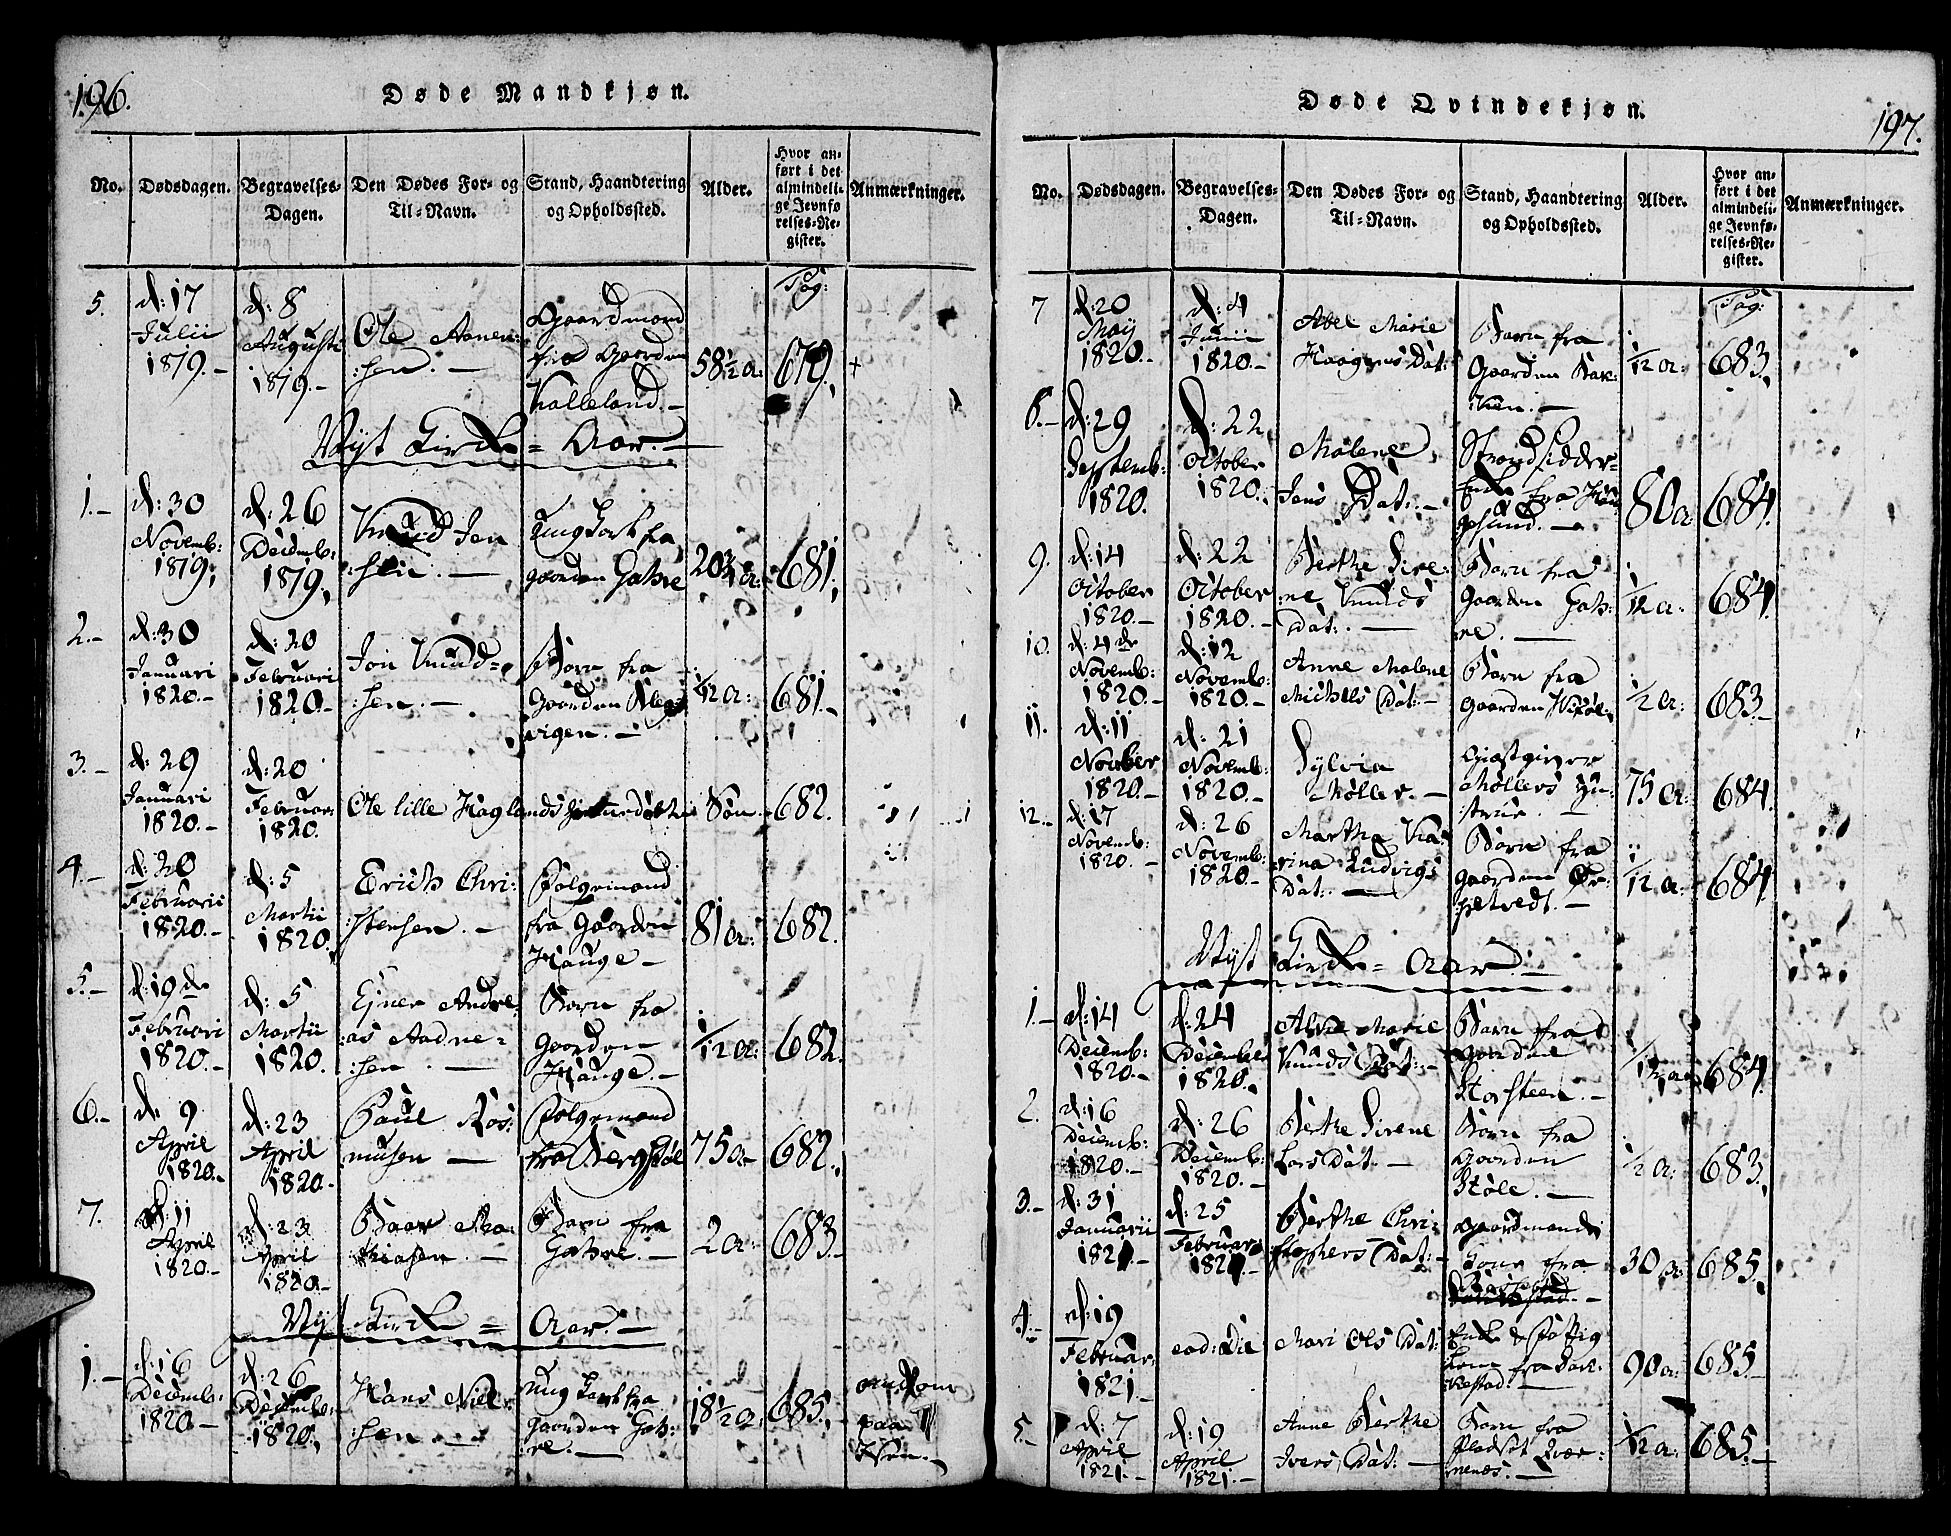 196.
Døde Mandkjøn.
No.
Dødsdagen.
Begravelses-
Dagen.
Den Dødes For- og
Til-Navn.
Stand, Haandtering
og Opholdssted.
Alder.
Hvor an-
ført i det
almindeli-
ge Jevnfø-
relses-Re-
gister.
Anmærkninger.
Pag:
5.
d: 17
Julii
1819.-
d: 8
Augusti
1819.-
Ole Aanen:
:sen. -
Gaardmand
fra Gaarden
Kalleland.-
58 1/2 a:
679.
+
Nyt Kirke = Aar.-
1.-
d: 30
Novemb:
1819.
d: 26
Decemb:
1819.
Knud Jen
:sen. -
Ung Karl fra
gaarden Gahre
20 3/4 a:
681.
2.-
d: 30
Januari
1820.-
d: 20
Februari
1820.-
Jon Knud=
:sen. -
Barn fra
Gaarden
vigen.-
1/12 a:
681.-
3.-
d: 29
Januari
1820.-
d: 20
Februar:
1820.
Ole lille Haglands
Søn.
682.
4.-
d: 20
Februarii
1820.-
d: 5
Martii
1820.
Erich Chri:
:stensen. -
Folgemand
fra Gaarden
Hauge -
81 a:
682.
5.-
d: 19de
Februari
1820.-
d: 5
Martii
1820.
Ejner Andre:
:as Aadne=
:sen. -
Barn fra
Gaarden
Hauge.-
1/12 a:
682.
6.-
d: 9
April
1820.-
d: 23
April
1820.-
Paul Ras:
musen -
Folgemand
fra
75 a-
682.
7.
d: 11
April
1820.-
d: 23
April
1820.-
Baar
Barn fra
Gahre.-
2 a:
683.-
Nyt Kirke = Aar.-
1.-
d: 16
Decemb:
1820-
d: 26
Decemb:
1820.
Hans Niel=
:sen. -
ung Karl fra
gaarden Gah:
re.-
18 1/2 a:
685.
omkom
paa
Isen.-
197.
Døde Qvindekjøn.
No.
Dødsdagen.
Begravelses-
Dagen.
Den Dødes For- og
Til-Navn.
Stand, Haandtering
og Opholdssted.
Alder.
Hvor an-
ført i det
almindeli-
ge Jevnfø-
relses-Re-
gister.
Anmærkninger.
Pag:
7
d: 20
Maÿ
1820.-
d: 4
Junii
1820.-
Abel Marie
Haagens Dat:
Barn fra
Gaarden
1/12 a:
683.
d: 29
Septemb:
1820.
d: 22
October
1820.
Malene
Jens Dat:. -
Strandsidder-
Enke fra Hau
gesund.-
80 a:
684.
9.
d: 14
October
1820.-
d: 22
October
1820.-
Berthe Sire:
:ne Knuds
Dat:. -
Barn fra
Gaarden Gah:
re.-
1/12 a:
684.
10.
d: 4de
Novemb:
1820.-
d: 12
Novemb:
1820.-
Anne Malene
Michels Dat:-
Barn fra
Gaarden
1/2 a:
683.-
11.
d: 11
1820.-
d: 21
Novemb:
1820.-
Sylvia
Møller.-
Giæstgiver
Møllers Hu-
strue.-
75 a:
684.
12.-
d: 17
Novemb:
1820.-
d: 26
Novemb:
1820.-
Marthe Ka:
rina Ludvigs
Dat:. -
Barn fra
gaarden Ør:
petvedt.-
1/12 a:
684.
Nyt Kirke = Aar.-
1.-
d: 14
Decemb:
1820.-
d: 24
December
1820.-
Marie
Knuds Dat:.-
Barn fra
gaarden
Storsteen.-
684.
2.
d: 16
Decemb:
1820.-
d: 26
Decemb:
1820.-
Berthe Sirene
Lars Dat:.-
Barn fra
gaarden
Støle.-
1/2 a:
683.
3.-
d: 31
Januarii
1821.
d: 25
Februar
1821.
Berthe Chri:
stophers Dat:-
Gaardmands
Kone fra
30 a:
685.
4.-
d: 19
Februar:
1821.-
eod: die
Mari Ols Dat:
Enke & Fattig
Lem fra
90 a:
685.-
5.-
d: 7
April
1821.-
d: 19
April
1821.-
Anne Berthe
Ivers Dat: -
Barn fra
Pladset Kvær:
nenæs.-
1/12 a:
685.-